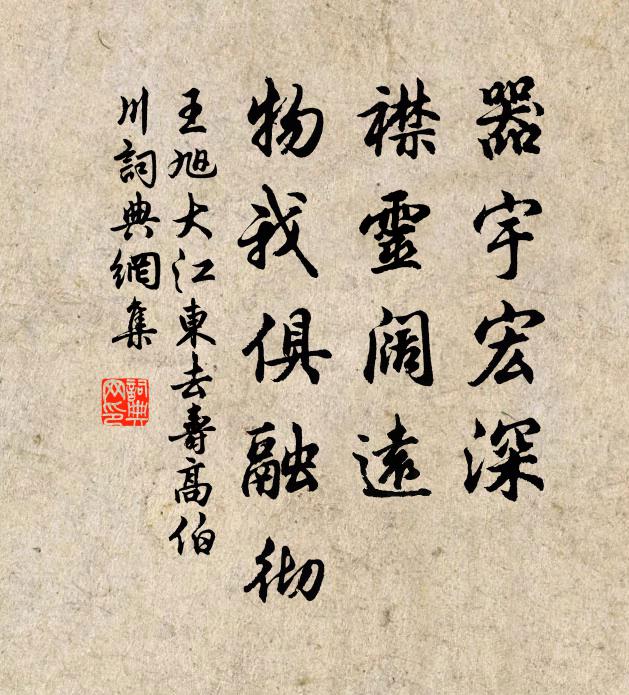 器宇宏深
襟靈闊遠
物我俱融彻
王旭大江東去壽高伯
川詞典網集
詞典
网印